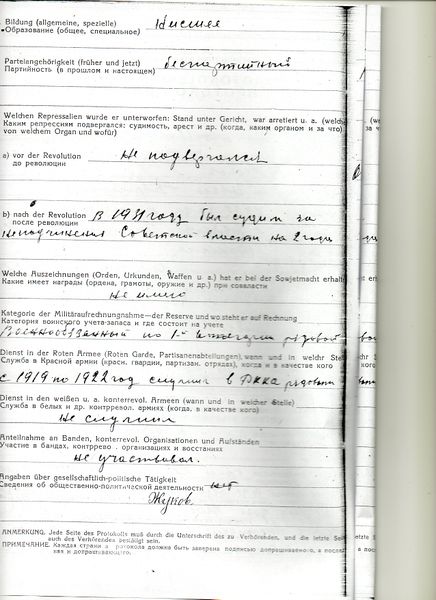 Bildung (allgemeine, spezielle) Низшая
Образование (общее, специальное)
Parteiangehörigkeit (früher und jetzt) беспартийный
Партийность (в прошлом и настоящем)
Welchen Repressalien wurde er unterworfen: Stand unter Gericht, war arretiert u. a. (welch
Каким репрессиям подвергался: судимость, арест и др. (когда, каким органом и за что)
von welchem Organ und wofür)
a) vor der Revolution не подвергался
до революции
b) nach der Revolution В 1931 году был судим за
после революции
неподчинения Советской власти на 2 года
Welche Auszeichnungen (Orden, Urkunden, Waffen u. a.) hat er bei der Sowjetmacht erhalt
Какие имеет награды (ордена, грамоты, оружие и др.) при совласти
не имею
Kategorie der Militäraufrechnungsnahme—der Reserve und wo steht er auf Rechnung
Категория воинского учета-запаса и где состоит на учете
Военнообязанный по 1-й категории рядовой
Dienst in der Roten Armee (Roten Garde, Partisanenabteilungen), wann und in welchr Ste
Служба в Красной армии (красн. гвардии, партизан. отрядах), когда и в качестве кого
с 1919 по 1922 год служил в РККА рядовым
Dienst in den weißen u. a. konterrevol. Armeen (wann und in welcher Stelle)
Служба в белых и др. контррревол. армиях (когда, в качестве кого)
не служил
Anteilnahme an Banden, konterrevol. Organisationen und Aufständen
Участие в бандах, контррево . организациях и восстаниях
не участвовал.
Angaben über gesellschaftlich-politische Tätigkeit
Сведения об общественно-политической деятельности нет
Жуков
ANMERKUNG. Jede Seite des Protokolls muß durch die Unterschrift des zu Verhörenden, und die letzte Seit
auch des Verhörenden bestätigt sein.
ПРИМЕЧАНИЕ. Каждая страни а ротокола должна быть заверена подписью допрашиваемого, а послед
няя и допрашивающего.